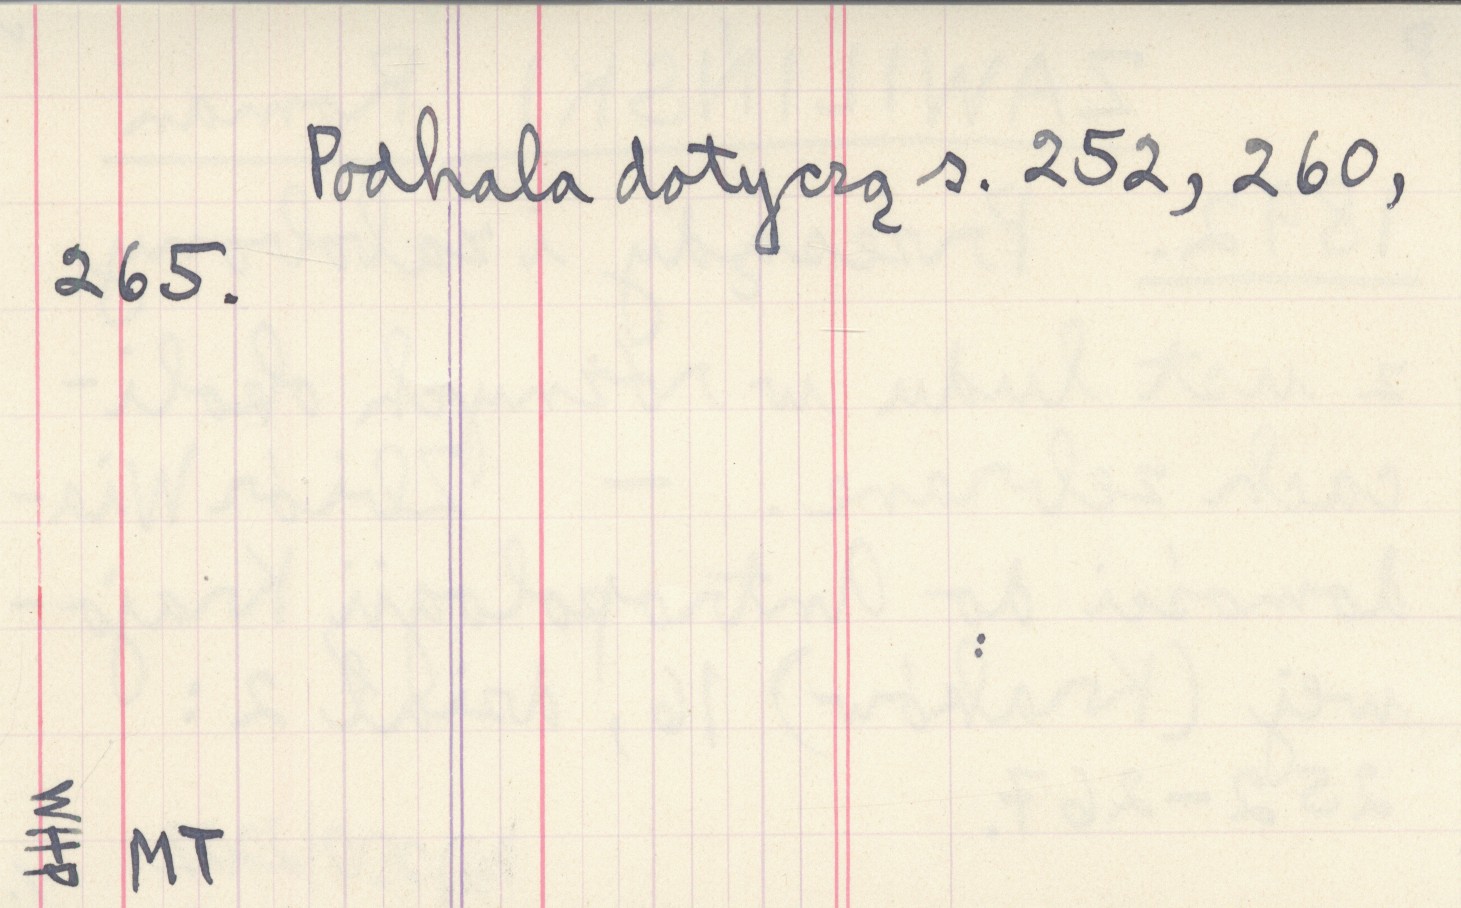 Podhala dotyczą s. 252, 260,
265.
WHP
MT